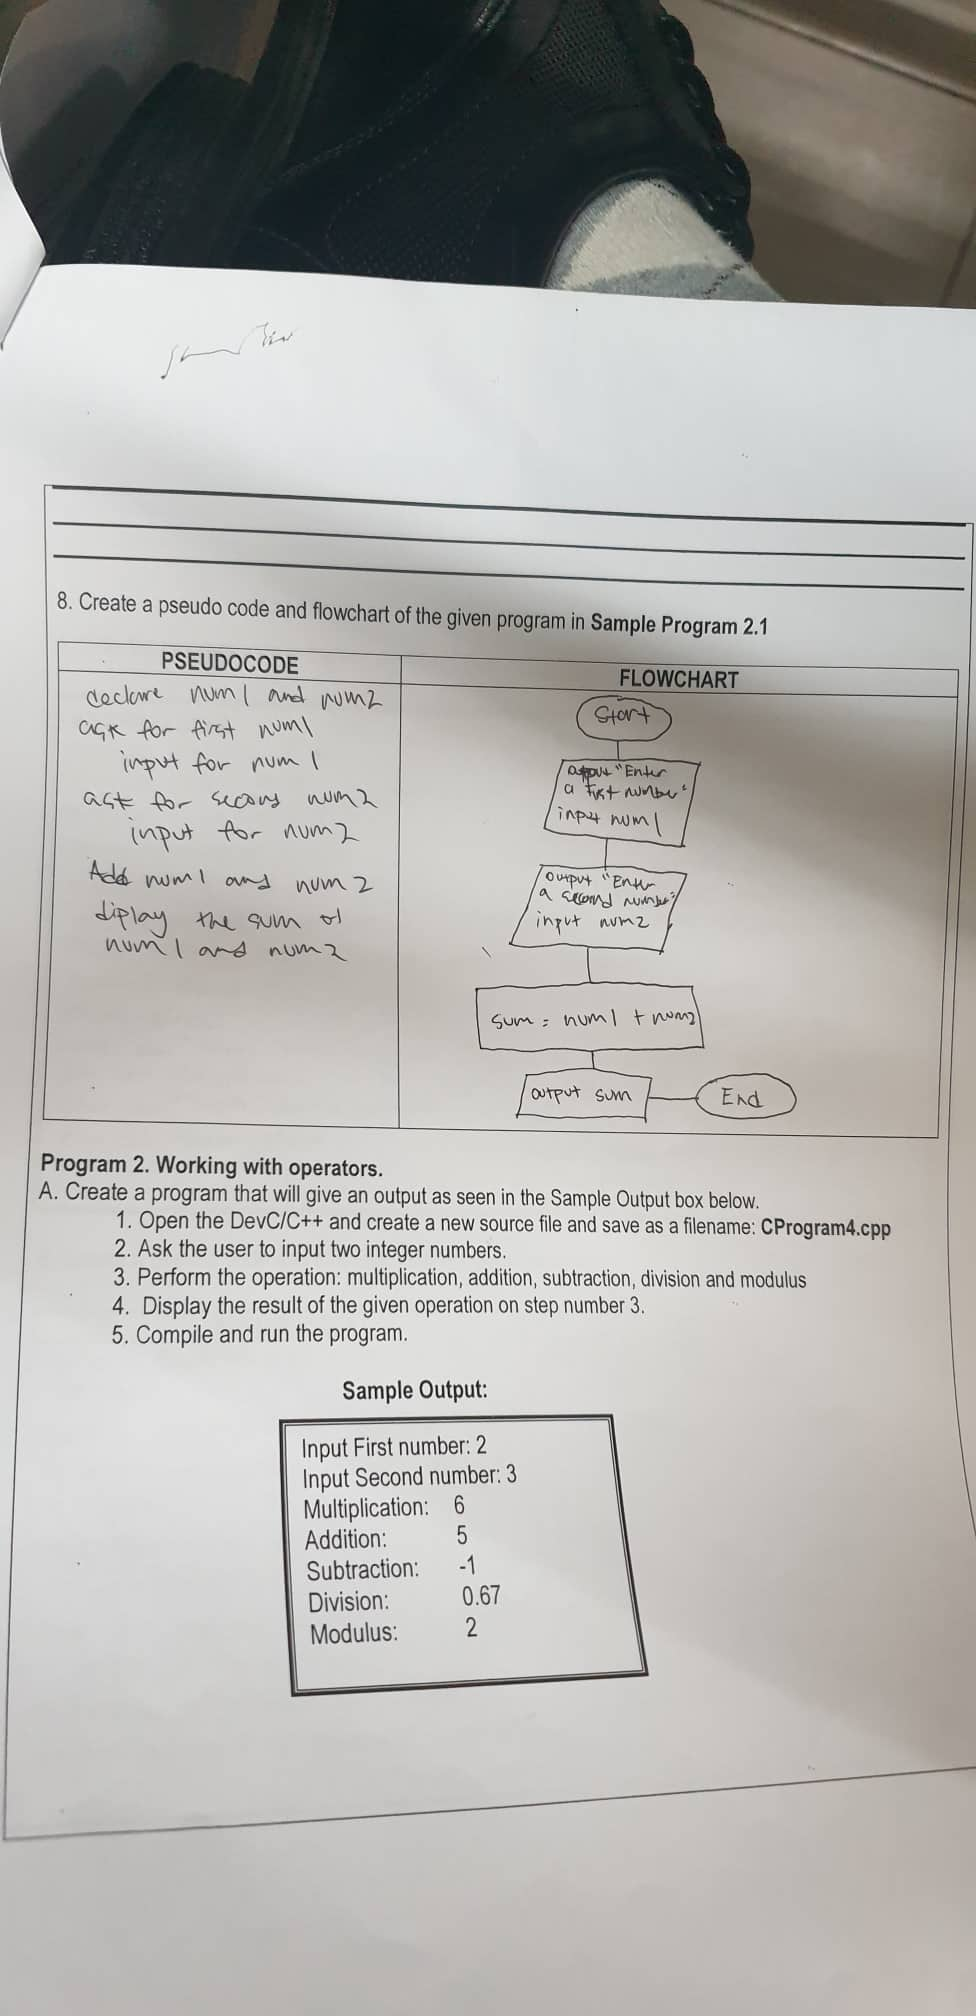 8. Create a pseudo code and flowchart of the given program in Sample Program 2.1
PSEUDOCODE
declare num1 and num2
ask for first num1
input for num 1
ask for second num2
input for num2
Add num1 and num 2
diplay the sum of
num 1 and num2
FLOWCHART
Start
output "Enter
a first number"
input num1
output "Enter
a second number"
input num2
sum = num1 + num2
output sum
End
Program 2. Working with operators.
A. Create a program that will give an output as seen in the Sample Output box below.
1. Open the DevC/C++ and create a new source file and save as a filename: CProgram4.cpp
2. Ask the user to input two integer numbers.
3. Perform the operation: multiplication, addition, subtraction, division and modulus
4. Display the result of the given operation on step number 3.
5. Compile and run the program.
Sample Output:
Input First number: 2
Input Second number: 3
Multiplication: 6
Addition: 5
Subtraction: -1
Division: 0.67
Modulus: 2